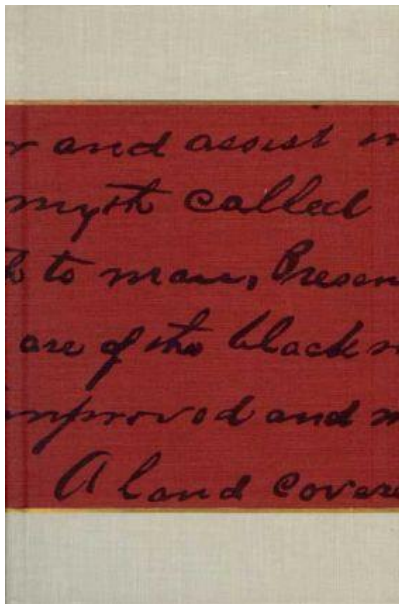 r and assist in
myth called
h to man, Presen
are of the black
improved and m
A land covere